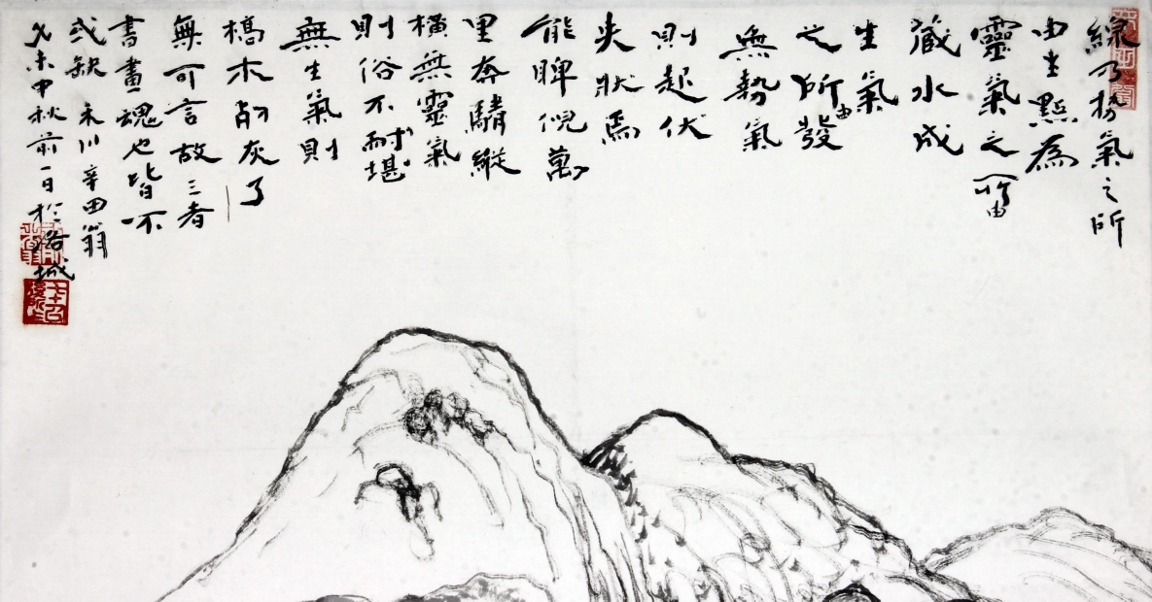 線乃勢氣之所
由生點為
靈氣之所由
藏水成
生氣
之所由發
無勢氣
則起伏
失狀焉
能睥睨萬
里奔縱
橫無靈氣
則俗不耐堪
無生氣則
槁木死灰了
無可言故三者
書畫魂也皆不
或缺 禾川辛田翁
未中秋前一日於洛城